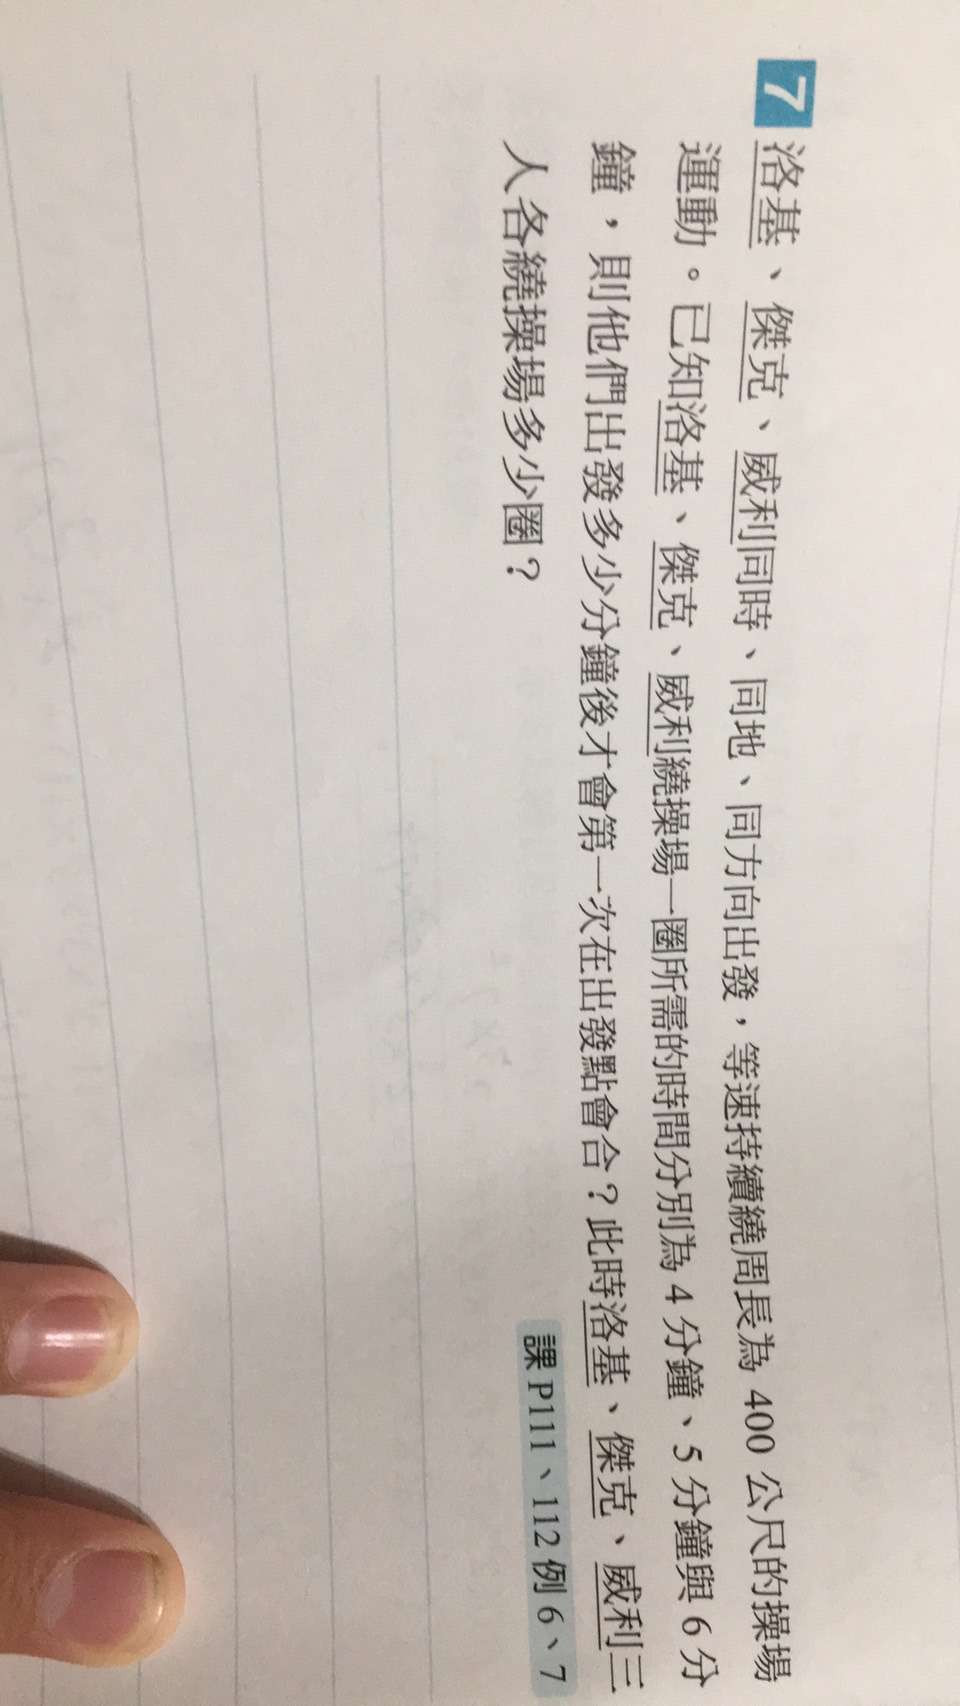 7 洛基、傑克、威利同時、同地、同方向出發，等速持續繞周長為 400 公尺的操場
運動。已知洛基、傑克、威利繞操場一圈所需的時間分別為 4 分鐘、5 分鐘與 6 分
鐘，則他們出發多少分鐘後才會第一次在出發點會合？此時洛基、傑克、威利三
人各繞操場多少圈？
課 P111、112 例 6、7